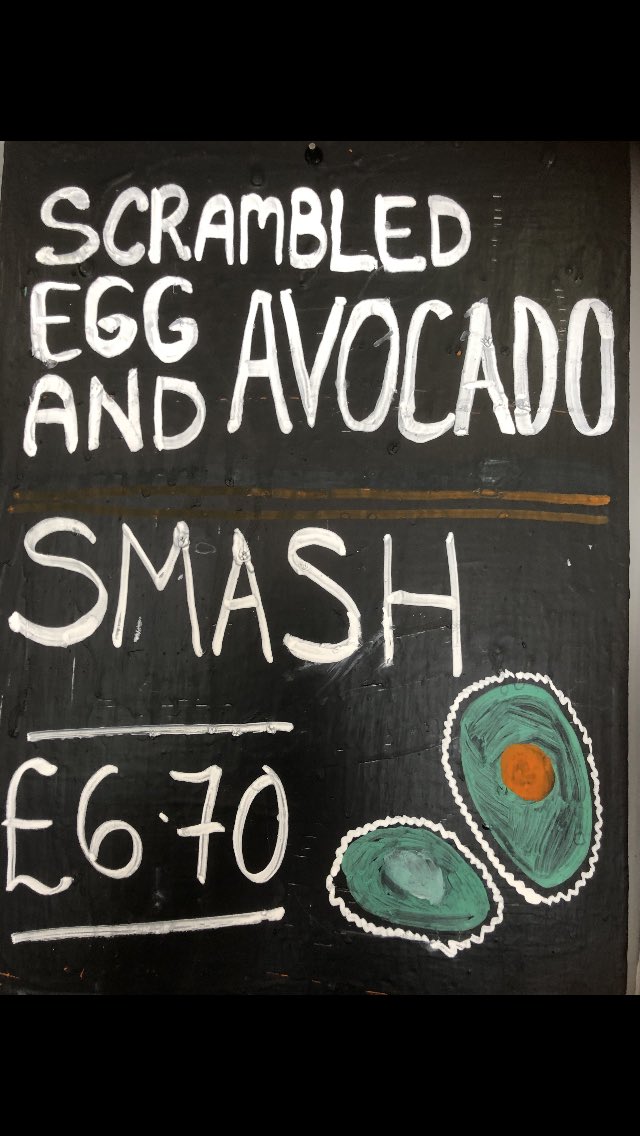 SCRAMBLED
EGG
AND AVOCADO
SMASH
£6.70